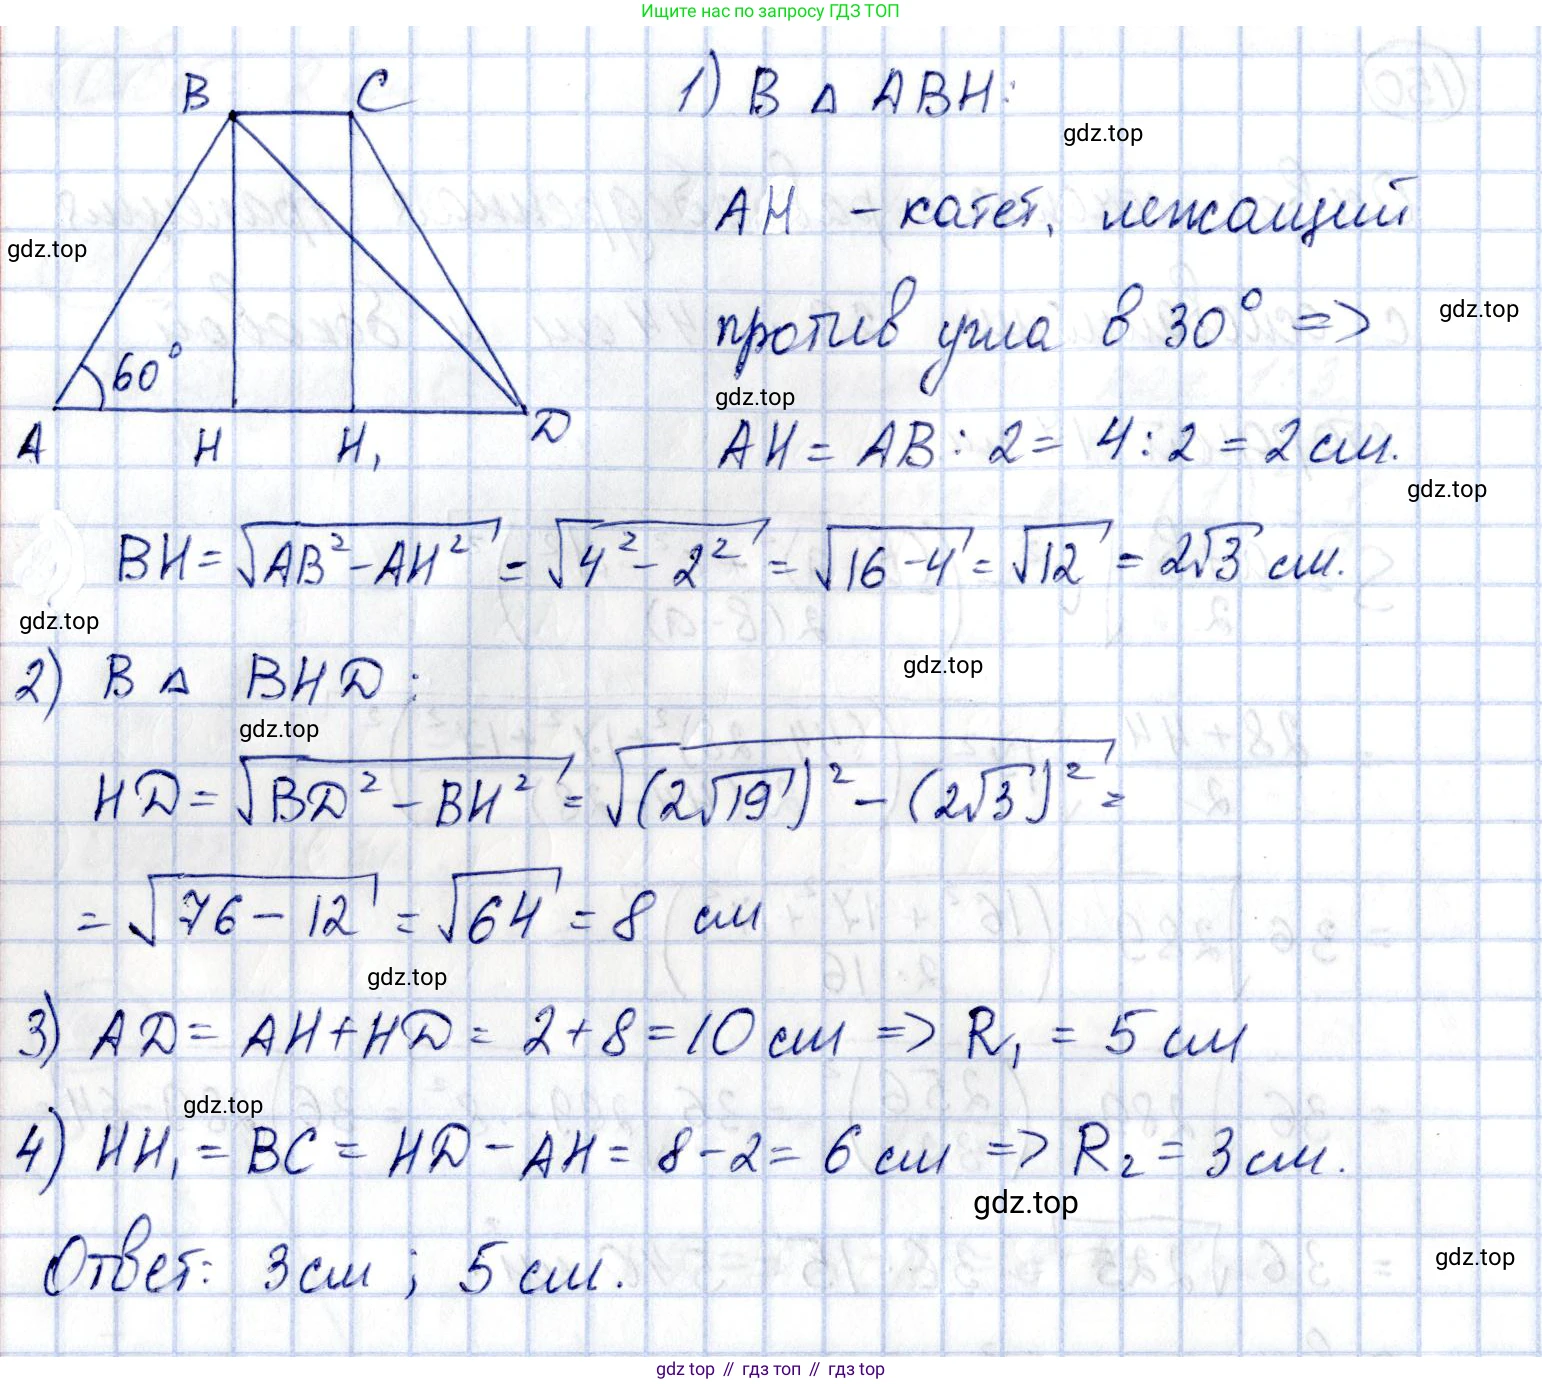 Ищите нас по запросу ГДЗ ТОП
B C
60°
A H H₁ D
1) В Δ ABH:
gdz.top
AH - катет, лежащий
gdz.top
против угла в 30° =>
gdz.top
gdz.top
AH = AB : 2 = 4 : 2 = 2 см.
gdz.top
BH = √(AB² - AH²) = √(4² - 2²) = √(16 - 4) = √12 = 2√3 см.
gdz.top
2) В Δ BHD:
gdz.top
gdz.top
HD = √(BD² - BH²) = √((2√19)² - (2√3)²) =
= √(76 - 12) = √64 = 8 см
gdz.top
3) AD = AH + HD = 2 + 8 = 10 см => R₁ = 5 см
gdz.top
4) HH₁ = BC = HD - AH = 8 - 2 = 6 см => R₂ = 3 см.
gdz.top
Ответ: 3 см ; 5 см.
gdz.top
gdz top // гдз топ // гдз top